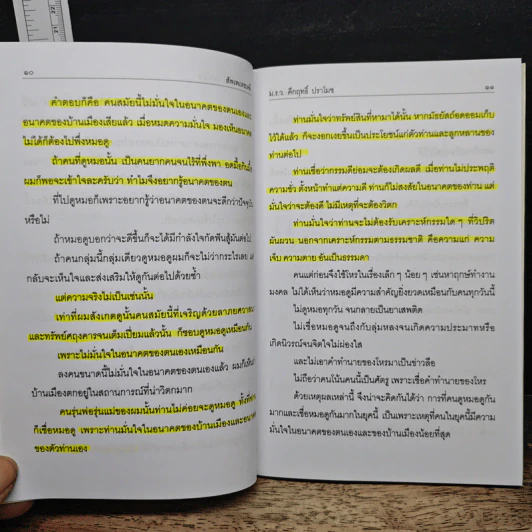 ๑๐
สัพเพเหระคดี
คำตอบก็คือ คนสมัยนี้ไม่มั่นใจในอนาคตของตนเองและ
อนาคตของบ้านเมืองเสียแล้ว เมื่อหมดความมั่นใจ มองเห็นอนาคต
ไม่ได้ก็ต้องไปพึ่งหมอดู
ถ้าคนที่ดูหมอนั้น เป็นคนยากคนจนไร้ที่พึ่งพา อดมื้อกินมื้อ
ผมก็พอจะเข้าใจละครับว่า ทำไมจึงอยากรู้อนาคตของตน
ที่ไปดูหมอก็เพราะอยากรู้ว่าอนาคตของตนจะดีกว่าปัจจุบัน
หรือไม่
ถ้าหมอดูบอกว่าจะดีขึ้นก็จะได้มีกำลังใจกัดฟันสู้มันต่อไป
ถ้าคนกลุ่มนี้กลุ่มเดียวดูหมอดูผมก็จะไม่ว่ากระไรเลย แต่
กลับจะเห็นใจและส่งเสริมให้ดูกันต่อไปด้วยซ้ำ
แต่ความจริงไม่เป็นเช่นนั้น
เท่าที่ผมสังเกตดูนั้นคนสมัยนี้ที่เจริญด้วยลาภยศวาสนา
และทรัพย์ศฤงคารจนเต็มเปี่ยมแล้วนั้น ก็ชอบดูหมอเหมือนกัน
เพราะไม่มั่นใจในอนาคตของตนเองเหมือนกัน
ลงคนขนาดนี้ไม่มั่นใจในอนาคตของตนเองแล้ว ผมก็เห็นว่า
บ้านเมืองตกอยู่ในสถานการณ์ที่น่าวิตกมาก
คนรุ่นพ่อรุ่นแม่ของผมนั้นท่านไม่ค่อยจะดูหมอดู ทั้งที่ท่าน
ก็เชื่อหมอดู เพราะท่านมั่นใจในอนาคตของบ้านเมืองและอนาคต
ของตัวท่านเอง
ม.ร.ว. คึกฤทธิ์ ปราโมช
๑๑
ท่านมั่นใจว่าทรัพย์สินที่หามาได้นั้น หากมัธยัสถ์อดออมเก็บ
ไว้ได้แล้ว ก็จะงอกเงยขึ้นเป็นประโยชน์แก่ตัวท่านและลูกหลานของ
ท่านต่อไป
ท่านเชื่อว่ากรรมดีย่อมจะต้องเกิดผลดี เมื่อท่านไม่ประพฤติ
ความชั่ว ตั้งหน้าทำแต่ความดี ท่านก็ไม่สงสัยในอนาคตของท่าน แต่
มั่นใจว่าจะต้องดี ไม่มีเหตุที่จะต้องวิตก
ท่านมั่นใจว่าท่านจะไม่ต้องรับเคราะห์กรรมใด ๆ ที่วิปริต
ผันผวน นอกจากเคราะห์กรรมตามธรรมชาติ คือความแก่ ความ
เจ็บ ความตาย อันเป็นธรรมดา
คนแต่ก่อนจึงใช้โหรในเรื่องเล็ก ๆ น้อย ๆ เช่นหาฤกษ์ทำงาน
มงคล ไม่ได้เห็นว่าหมอดูมีความสำคัญยิ่งยวดเหมือนกับคนทุกวันนี้
ไม่ดูหมอทุกวัน จนกลายเป็นยาเสพติด
ไม่เชื่อหมอดูจนถึงกับลุ่มหลงจนเกิดความประมาทหรือ
เกิดนิวรณ์จนจิตใจไม่ผ่องใส
และไม่เอาคำทำนายของโหรมาเป็นข่าวลือ
ไม่ถือว่าคนโน้นคนนี้เป็นศัตรู เพราะเชื่อคำทำนายของโหร
ด้วยเหตุผลเหล่านี้ จึงน่าจะคิดกันได้ว่า การที่คนดูหมอดูกัน
มากและเชื่อหมอดูกันมากในยุคนี้ เป็นเพราะเหตุที่คนในยุคนี้มีความ
มั่นใจในอนาคตของตนเองและของบ้านเมืองน้อยที่สุด